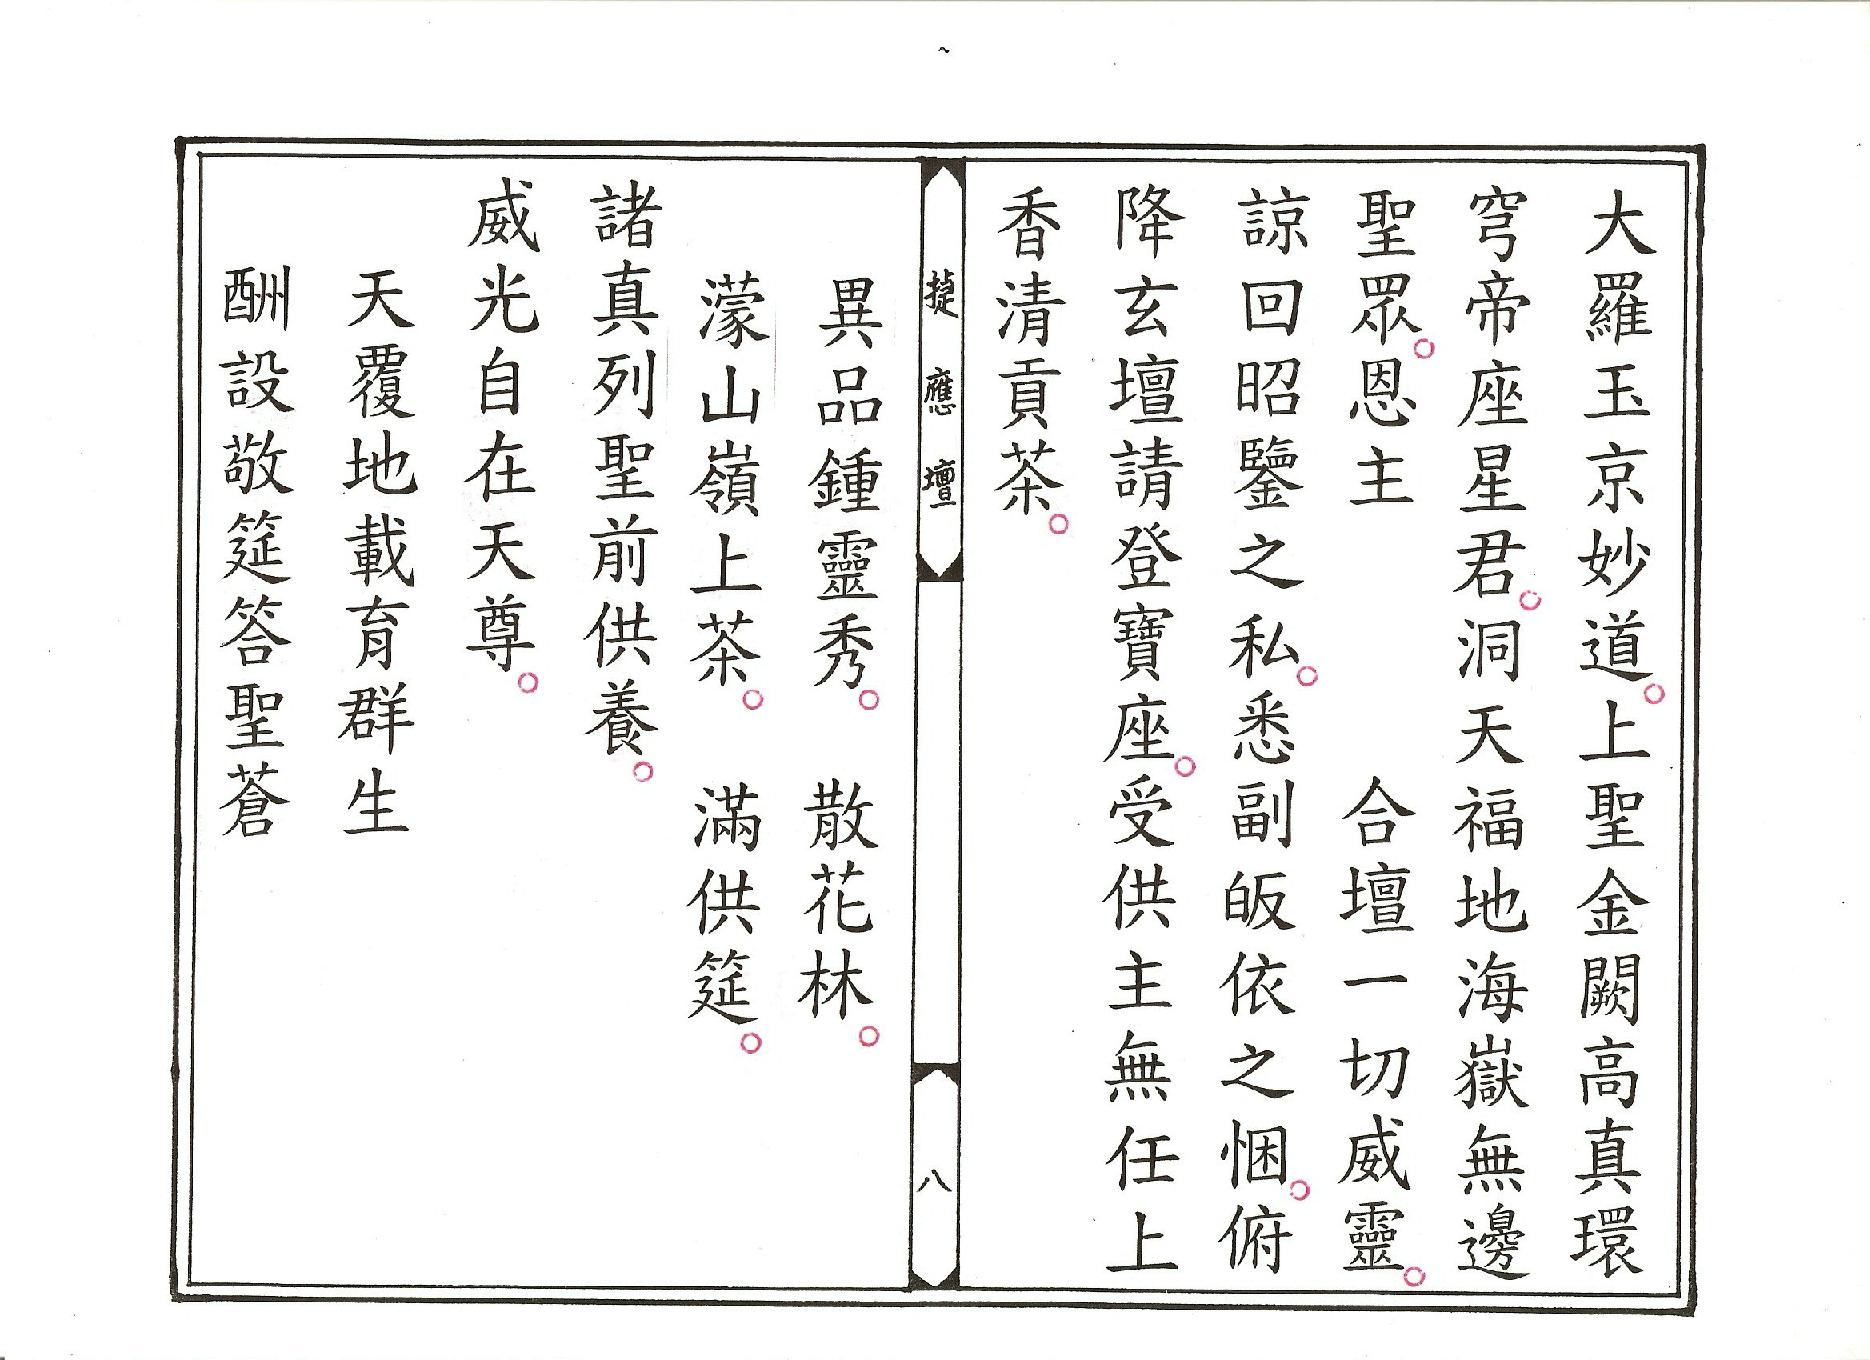 大羅玉京妙道。上聖金闕高真環
穹帝座星君。洞天福地海嶽無邊
聖眾。恩主　　　合壇一切威靈。
諒回昭鑒之私。悉副皈依之悃。俯
降玄壇請登寶座。受供主無任上
香清貢茶。
捷應壇
八
異品鍾靈秀。　散花林。
濛山嶺上茶。　滿供筵。
諸真列聖前供養。
威光自在天尊。
天覆地載育群生
酬設敬筵答聖蒼